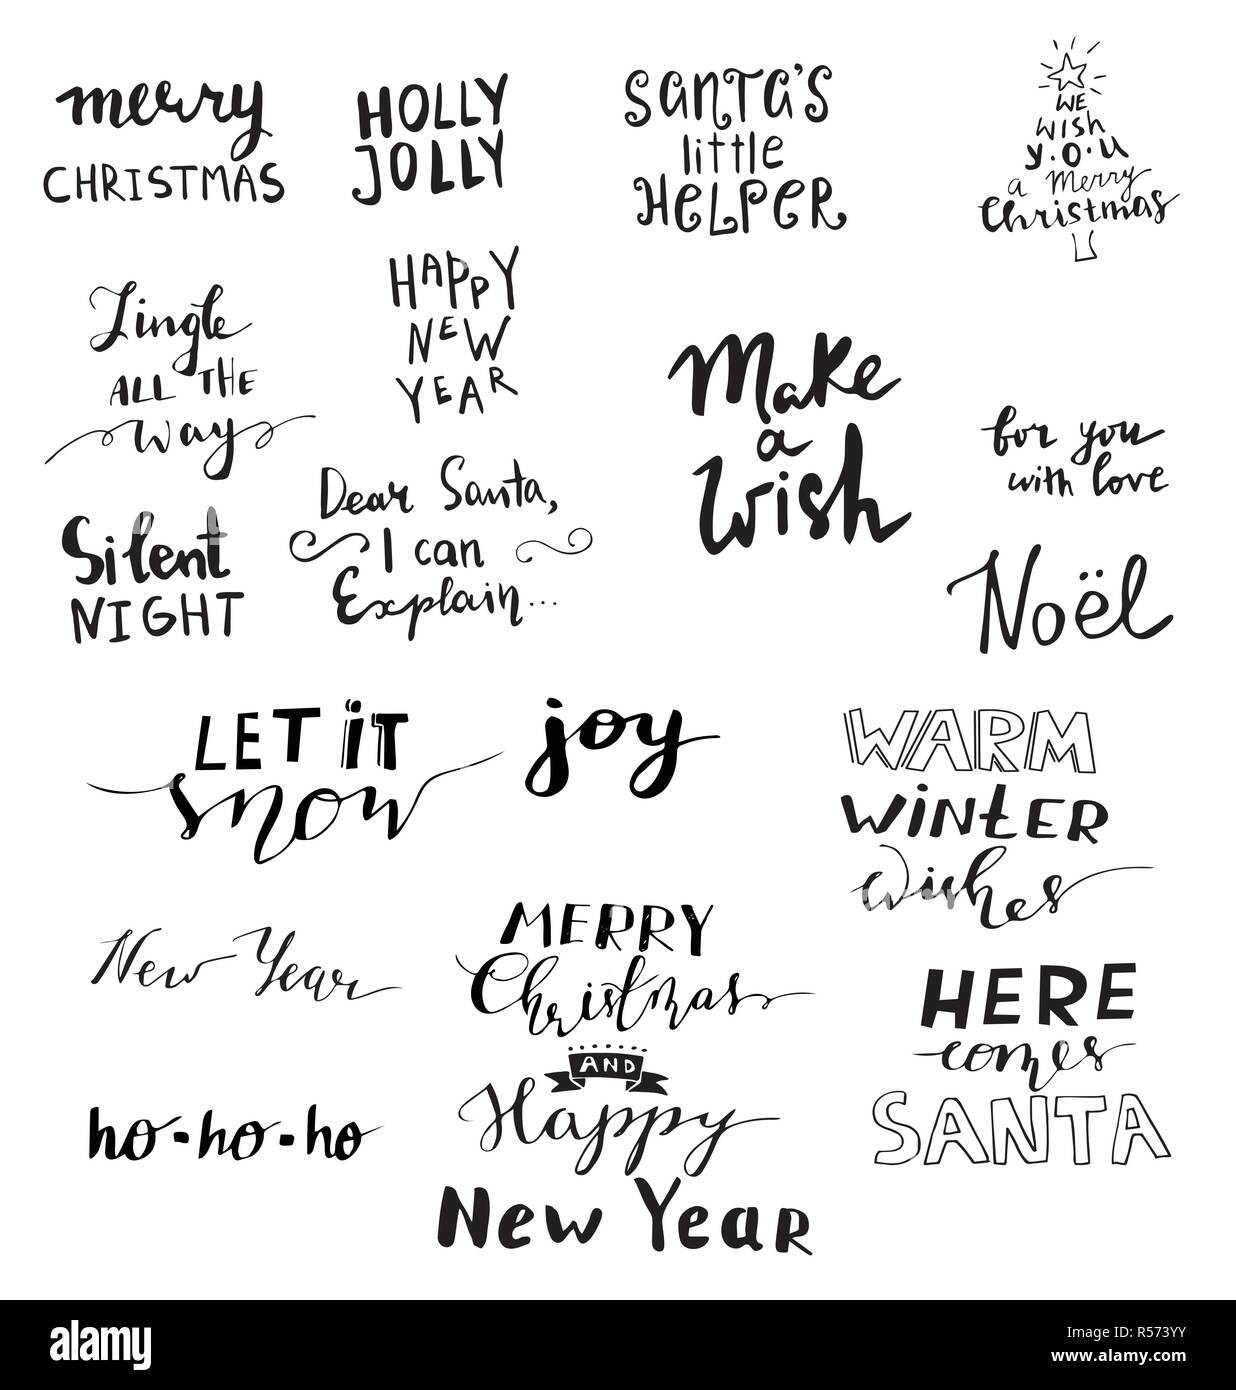 merry
CHRISTMAS
HOLLY
JOLLY
SANTA'S
little
HELPER
WE
WISH
Y.O.U
a Merry
Christmas
Jingle
ALL THE
way
HAPPY
NEW
YEAR
Make
a
Wish
for you
with love
Silent
NIGHT
Dear Santa,
I can
Explain...
Noël
LET iT
snow
joy
WARM
WiNtER
wishes
New Year
MERRY
Christmas
AND
Happy
New Year
HERE
comes
SANTA
ho-ho-ho
alamy
Image ID: R573YY
www.alamy.com